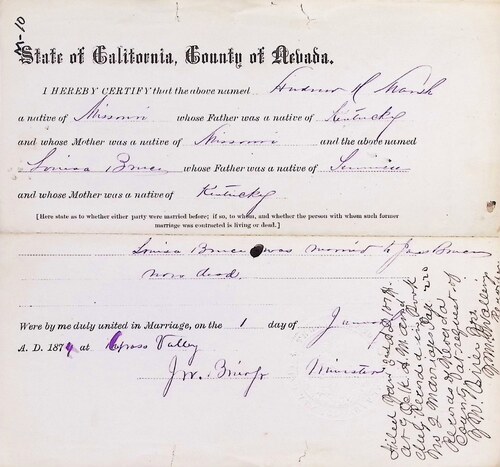 M-10
State of California, County of Nevada.
I HEREBY CERTIFY that the above named Andrew H Marsh
a native of Missouri whose Father was a native of Kentucky
and whose Mother was a native of Missouri and the above named
Louisa Bruce whose Father was a native of
and whose Mother was a native of Kentucky
[Here state as to whether either party were married before; if so, to whom, and whether the person with whom such former
marriage was contracted is living or dead.]
Louisa Bruce was married to Jas Bruce
now dead.
Were by me duly united in Marriage, on the 1 day of January
A. D. 1874 at Grass Valley
J.W. Minister
Filed Jan
at 9 O'clk A M and
duly Recorded in Book
No 2 Marriages Page 220
Records of Nevada
County at request of